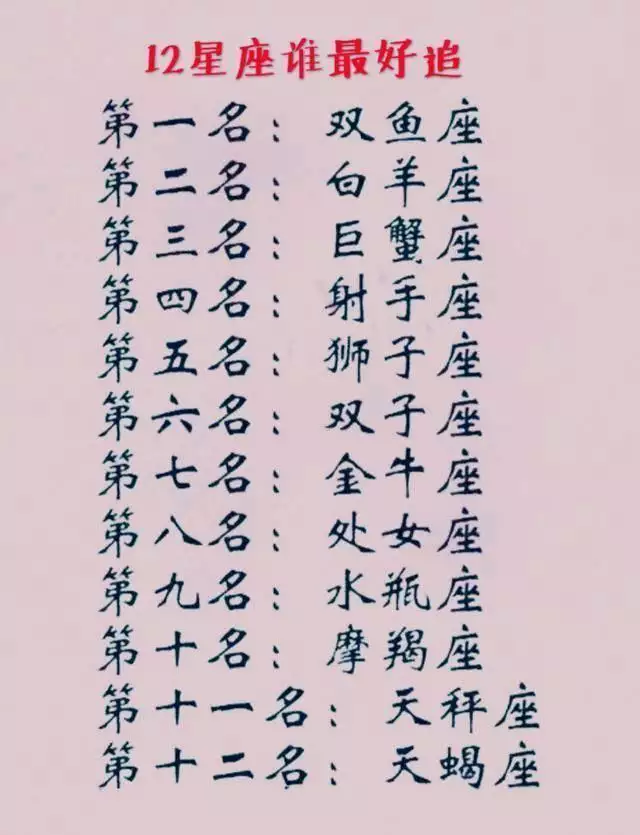 12星座谁最好追
第一名：双鱼座
第二名：白羊座
第三名：巨蟹座
第四名：射手座
第五名：狮子座
第六名：双子座
第七名：金牛座
第八名：处女座
第九名：水瓶座
第十名：摩羯座
第十一名：天秤座
第十二名：天蝎座